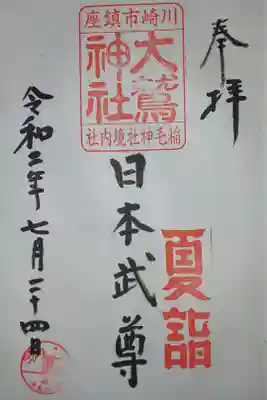 奉拝
川崎市鎮座
大鷲神社
稲毛神社境内社
日本武尊
夏詣
令和二年七月二十四日